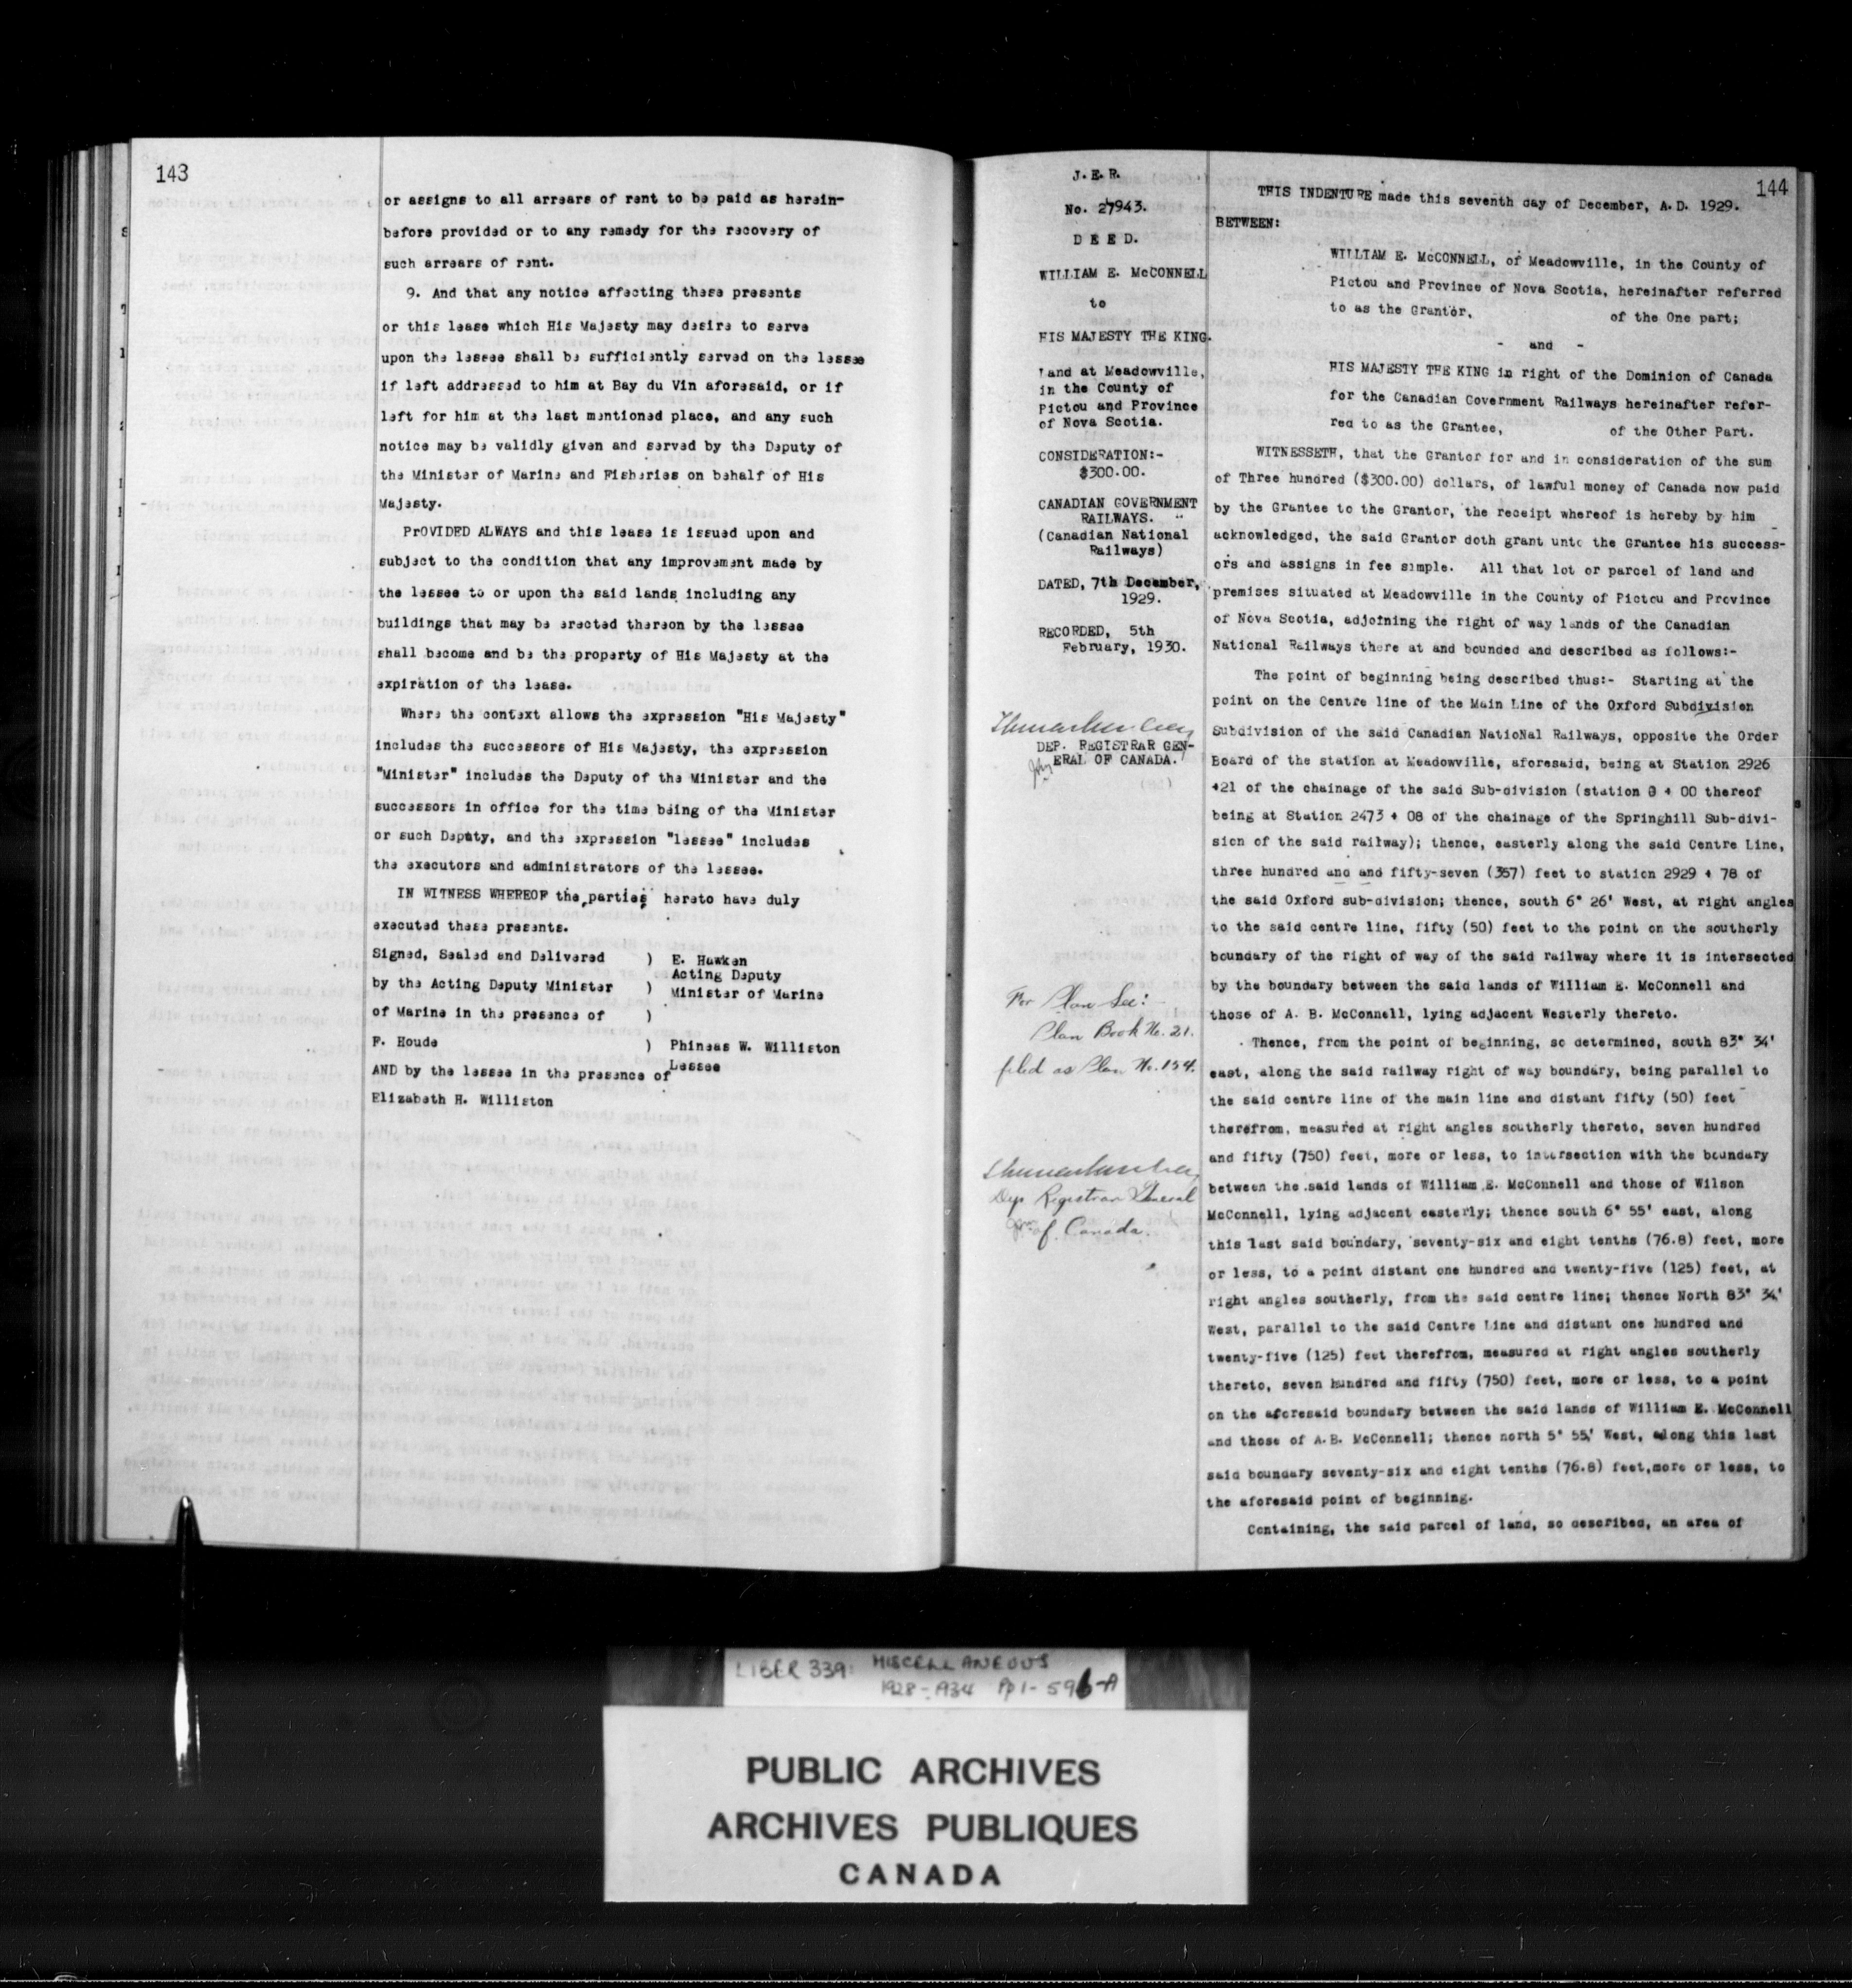 143
or assigns to all arrears of rent to be paid as herein-
before provided or to any remedy for the recovery of
such arrears of rent.
9. And that any notice affecting these presents
or this lease which His Majesty may desire to serve
upon the lessee shall be sufficiently served on the lessee
if left addressed to him at Bay du Vin aforesaid, or if
left for him at the last mentioned place, and any such
notice may be validly given and served by the Deputy of
the Minister of Marine and Fisheries on behalf of His
Majesty.
PrOVIDED ALWAYS and this lease is issued upon and
subject to the condition that any improvement made by
the lessee to or upon the said lands including any
buildings that may be erected thereon by the lessee
shall become and be the property of His Majesty at the
expiration of the lease.
Where the context allows the expression "His Majesty"
includes the successors of His Majesty, the expression
"Minister" includes the Deputy of the Minister and the
successors in office for the time being of the Minister
or such Deputy, and the expression "lessee" includes
the executors and administrators of the lessee.
IN WITNESS WHEREOF the parties hereto have duly
executed these presents.
Signed, Sealed and Delivered ) E. Hawken
Acting Deputy
by the Acting Deputy Minister ) Minister of Marine
of Marine in the presence of )
F. Houde ) Phineas W. Williston
Lessee
AND by the lessee in the presence of
Elizabeth H. Williston
J.E.R.
No. 27943.
D E E D.
WILLIAM E. McCONNELL
to
HIS MAJESTY THE KING.
Land at Meadowville,
in the County of
Pictou and Province
of Nova Scotia.
CONSIDERATION:-
$300.00.
CANADIAN GOVERNMENT
RAILWAYS.
(Canadian National
Railways)
DATED, 7th December,
1929.
RECORDED, 5th
February, 1930.
DEP. REGISTRAR GEN-
ERAL OF CANADA.
For Plan See:-
Plan Book No. 21.
filed as Plan No. 154.
Dep Registrar General
of Canada.
144
THIS INDENTURE made this seventh day of December, A.D. 1929.
BETWEEN:
WILLIAM E. McCONNELL, of Meadowville, in the County of
Pictou and Province of Nova Scotia, hereinafter referred
to as the Grantor, of the One part;
- and -
HIS MAJESTY THE KING in right of the Dominion of Canada
for the Canadian Government Railways hereinafter refer-
red to as the Grantee, of the Other Part.
WITNESSETH, that the Grantor for and in consideration of the sum
of Three hundred ($300.00) dollars, of lawful money of Canada now paid
by the Grantee to the Grantor, the receipt whereof is hereby by him
acknowledged, the said Grantor doth grant unto the Grantee his success-
ors and assigns in fee simple. All that lot or parcel of land and
premises situated at Meadowville in the County of Pictou and Province
of Nova Scotia, adjoining the right of way lands of the Canadian
National Railways there at and bounded and described as follows:-
The point of beginning being described thus:- Starting at the
point on the Centre line of the Main Line of the Oxford Subdivision
Subdivision of the said Canadian NatioNal Railways, opposite the Order
Board of the station at Meadowville, aforesaid, being at Station 2926
+21 of the chainage of the said Sub-division (station 0 + 00 thereof
being at Station 2473 + 08 of the chainage of the Springhill Sub-divi-
sion of the said railway); thence, easterly along the said Centre Line,
three hundred and and fifty-seven (357) feet to station 2929 + 78 of
the said Oxford sub-division; thence, south 6° 26' West, at right angles
to the said centre line, fifty (50) feet to the point on the southerly
boundary of the right of way of the said railway where it is intersected
by the boundary between the said lands of William E. McConnell and
those of A. B. McConnell, lying adjacent Westerly thereto.
Thence, from the point of beginning, so determined, south 83° 34'
east, along the said railway right of way boundary, being parallel to
the said centre line of the main line and distant fifty (50) feet
therefrom, measured at right angles southerly thereto, seven hundred
and fifty (750) feet, more or less, to intersection with the boundary
between the said lands of William E. McConnell and those of Wilson
McConnell, lying adjacent easterly; thence south 6° 55' east, along
this last said boundary, seventy-six and eight tenths (76.8) feet, more
or less, to a point distant one hundred and twenty-five (125) feet, at
right angles southerly, from the said centre line; thence North 83° 34'
West, parallel to the said Centre Line and distant one hundred and
twenty-five (125) feet therefrom, measured at right angles southerly
thereto, seven hundred and fifty (750) feet, more or less, to a point
on the aforesaid boundary between the said lands of William E. McConnell
and those of A.B. McConnell; thence north 5° 55' West, along this last
said boundary seventy-six and eight tenths (76.8) feet,more or less, to
the aforesaid point of beginning.
Containing, the said parcel of land, so described, an area of
LIBER 339: MISCELLANEOUS
1928-1934 Pp 1-596-A
PUBLIC ARCHIVES
ARCHIVES PUBLIQUES
CANADA